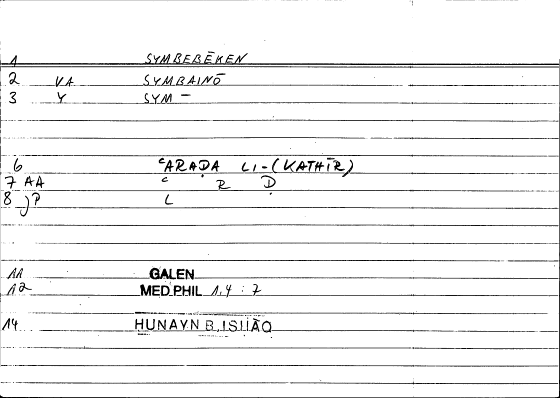 1 SYMBEBĒKEN
2 VA SYMBAINŌ
3 Y SYM -
6 ʿARAḌA LI-(KATHĪR)
7 AA ʿ R Ḍ
8 jP L
11 GALEN
12 MED.PHIL 1,4 : 7
14 HUNAYN B.ISḤĀQ